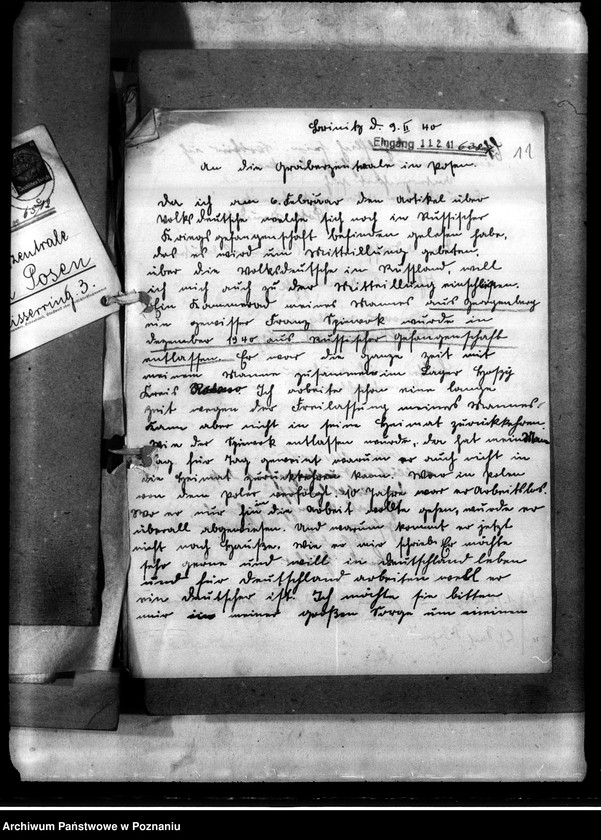 zentrale
Posen
isserring 3.
d. 9. II 40
Eingang 11.2.41
11
An die Gräberzentrale in Posen.
Da ich am 6. Februar den Artikel über
Volksdeutsche welche sich noch in Russischer
Kriegsgefangenschaft befinden gelesen habe,
das es wird um Mitteillung gebeten,
über die Volksdeutsche in Russland, will
ich mich auch zu der Mitteillung einschließen.
Ein Kammerad meines Mannes aus
ein gewisser Franz wurde in
Dezember 1940 aus Russischer Gefangenschaft
entlassen. Er war die ganze Zeit mit
meinem Manne zusammen im Lager
Kreis Rowno Ich arbeite schon eine lange
Zeit wegen der Freilassung meines Mannes.
Kann aber nicht in seine Heimat zurückkehren.
Wie der entlassen wurde, da hat mein Mann
Tag für Tag geweint warum er auch nicht in
die Heimat zurückkehren kann. War in Polen
von dem Polen verfolgt. 10 Jahre war er Arbeitslos.
Wo er nur hin die Arbeit wollte gehen, wurde er
überall abgewiesen. Und warum kommt er jetzt
nicht nach Hause. Wie er mir schrieb Er möchte
sehr gerne und will in Deutschland leben
und für Deutschland arbeiten weil er
ein Deutscher ist. Ich möchte sie bitten
mir in meiner großen Sorge um meinen
Archiwum Państwowe w Poznaniu